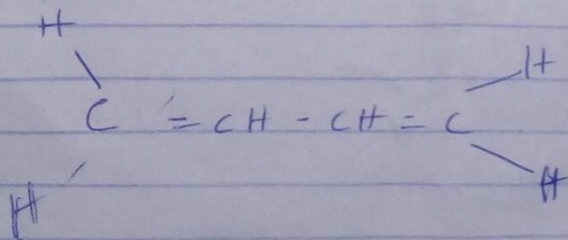 H H
C = CH - CH = C
H H